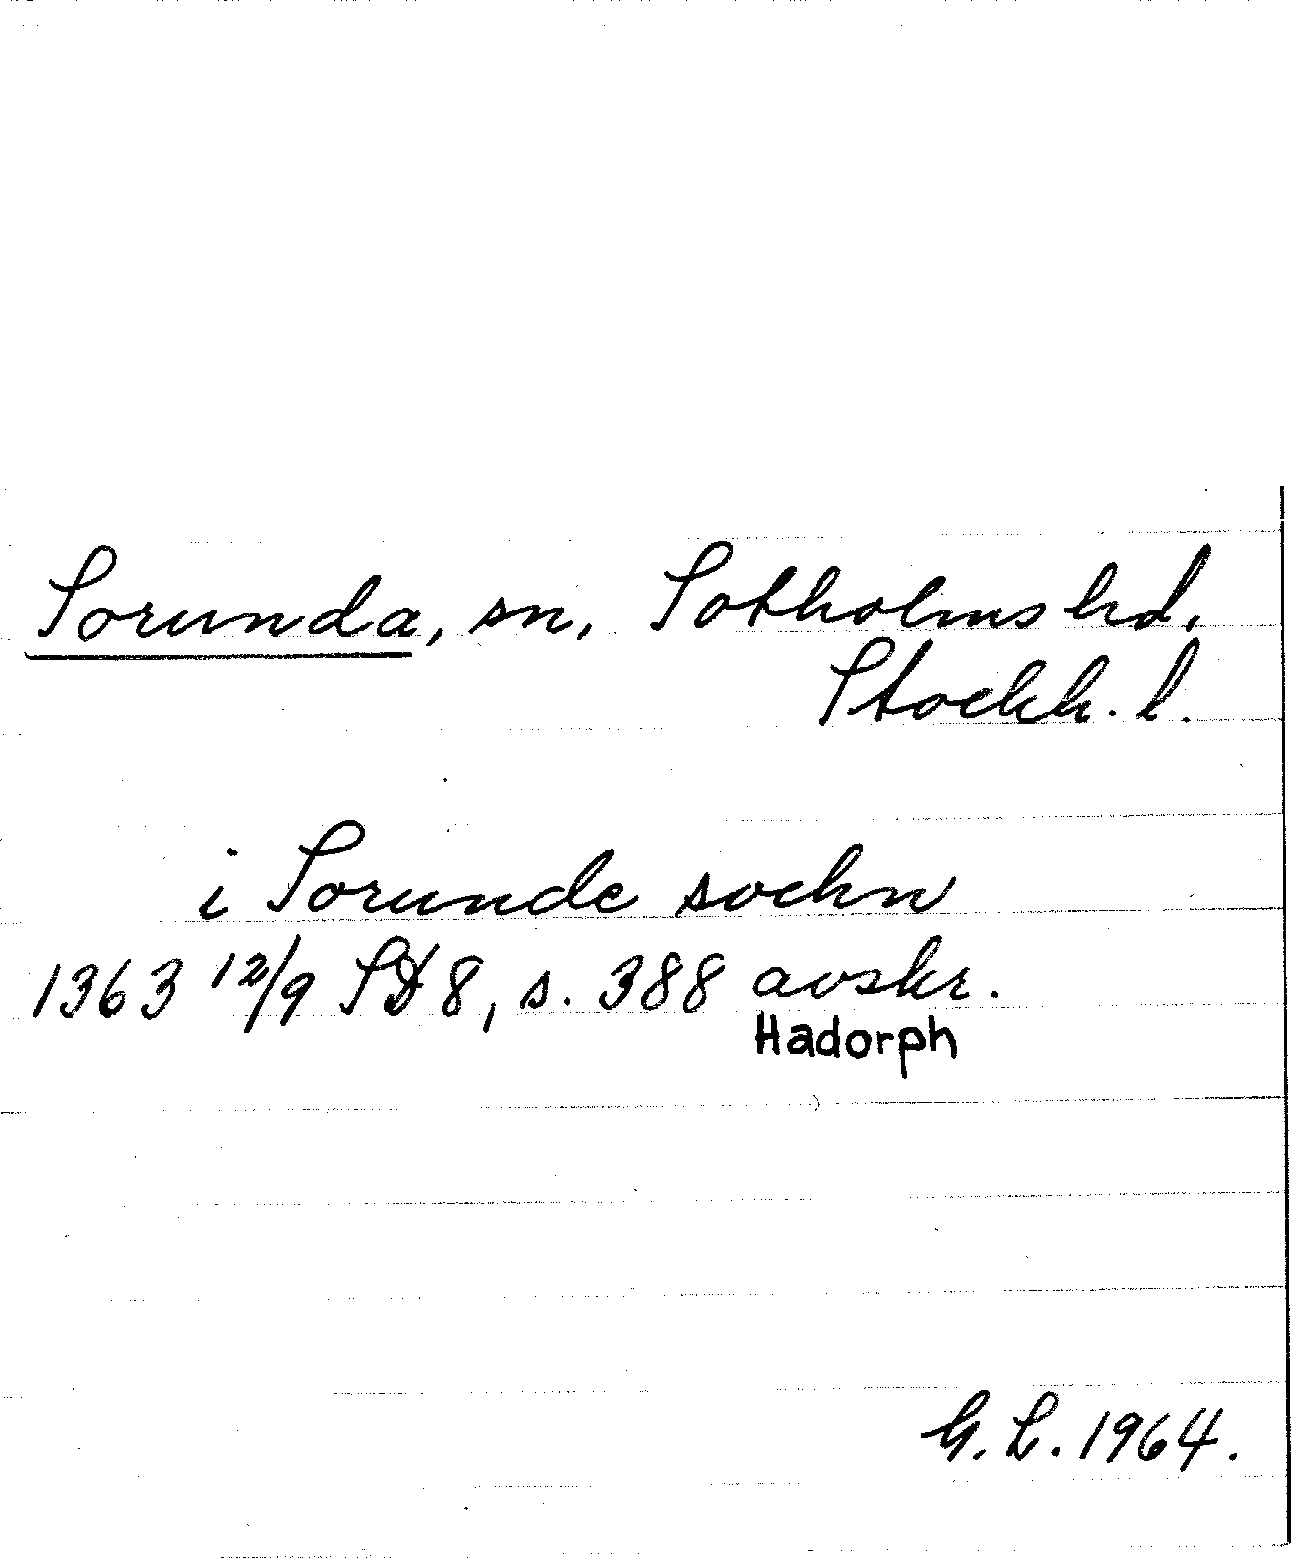 Sorunda, sn, Sotholms hd,
Stockh. l.
i Sorunde sochn
1363 12/9 SD 8, s. 388 avskr.
Hadorph
G. L. 1964.